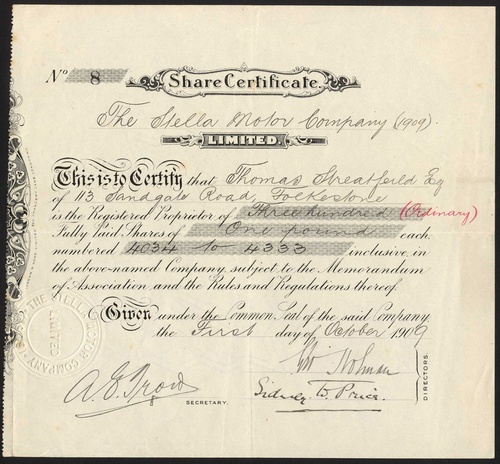 No 8 Share Certificate.
The Stella Motor Company (1909).
LIMITED.
This is to Certify that Thomas Streatfeild Esq
of 113 Sandgate Road Folkestone
is the Registered Proprietor of Three hundred (Ordinary)
Fully Paid Shares of One pound each,
numbered 4034 to 4333 inclusive, in
the above-named Company, subject to the Memorandum
of Association and the Rules and Regulations thereof.
Given under the Common Seal of the said Company,
the First day of October 1909
THE STELLA MOTOR COMPANY
LIMITED
A. E. SECRETARY.
Sidney D. Price. DIRECTORS.